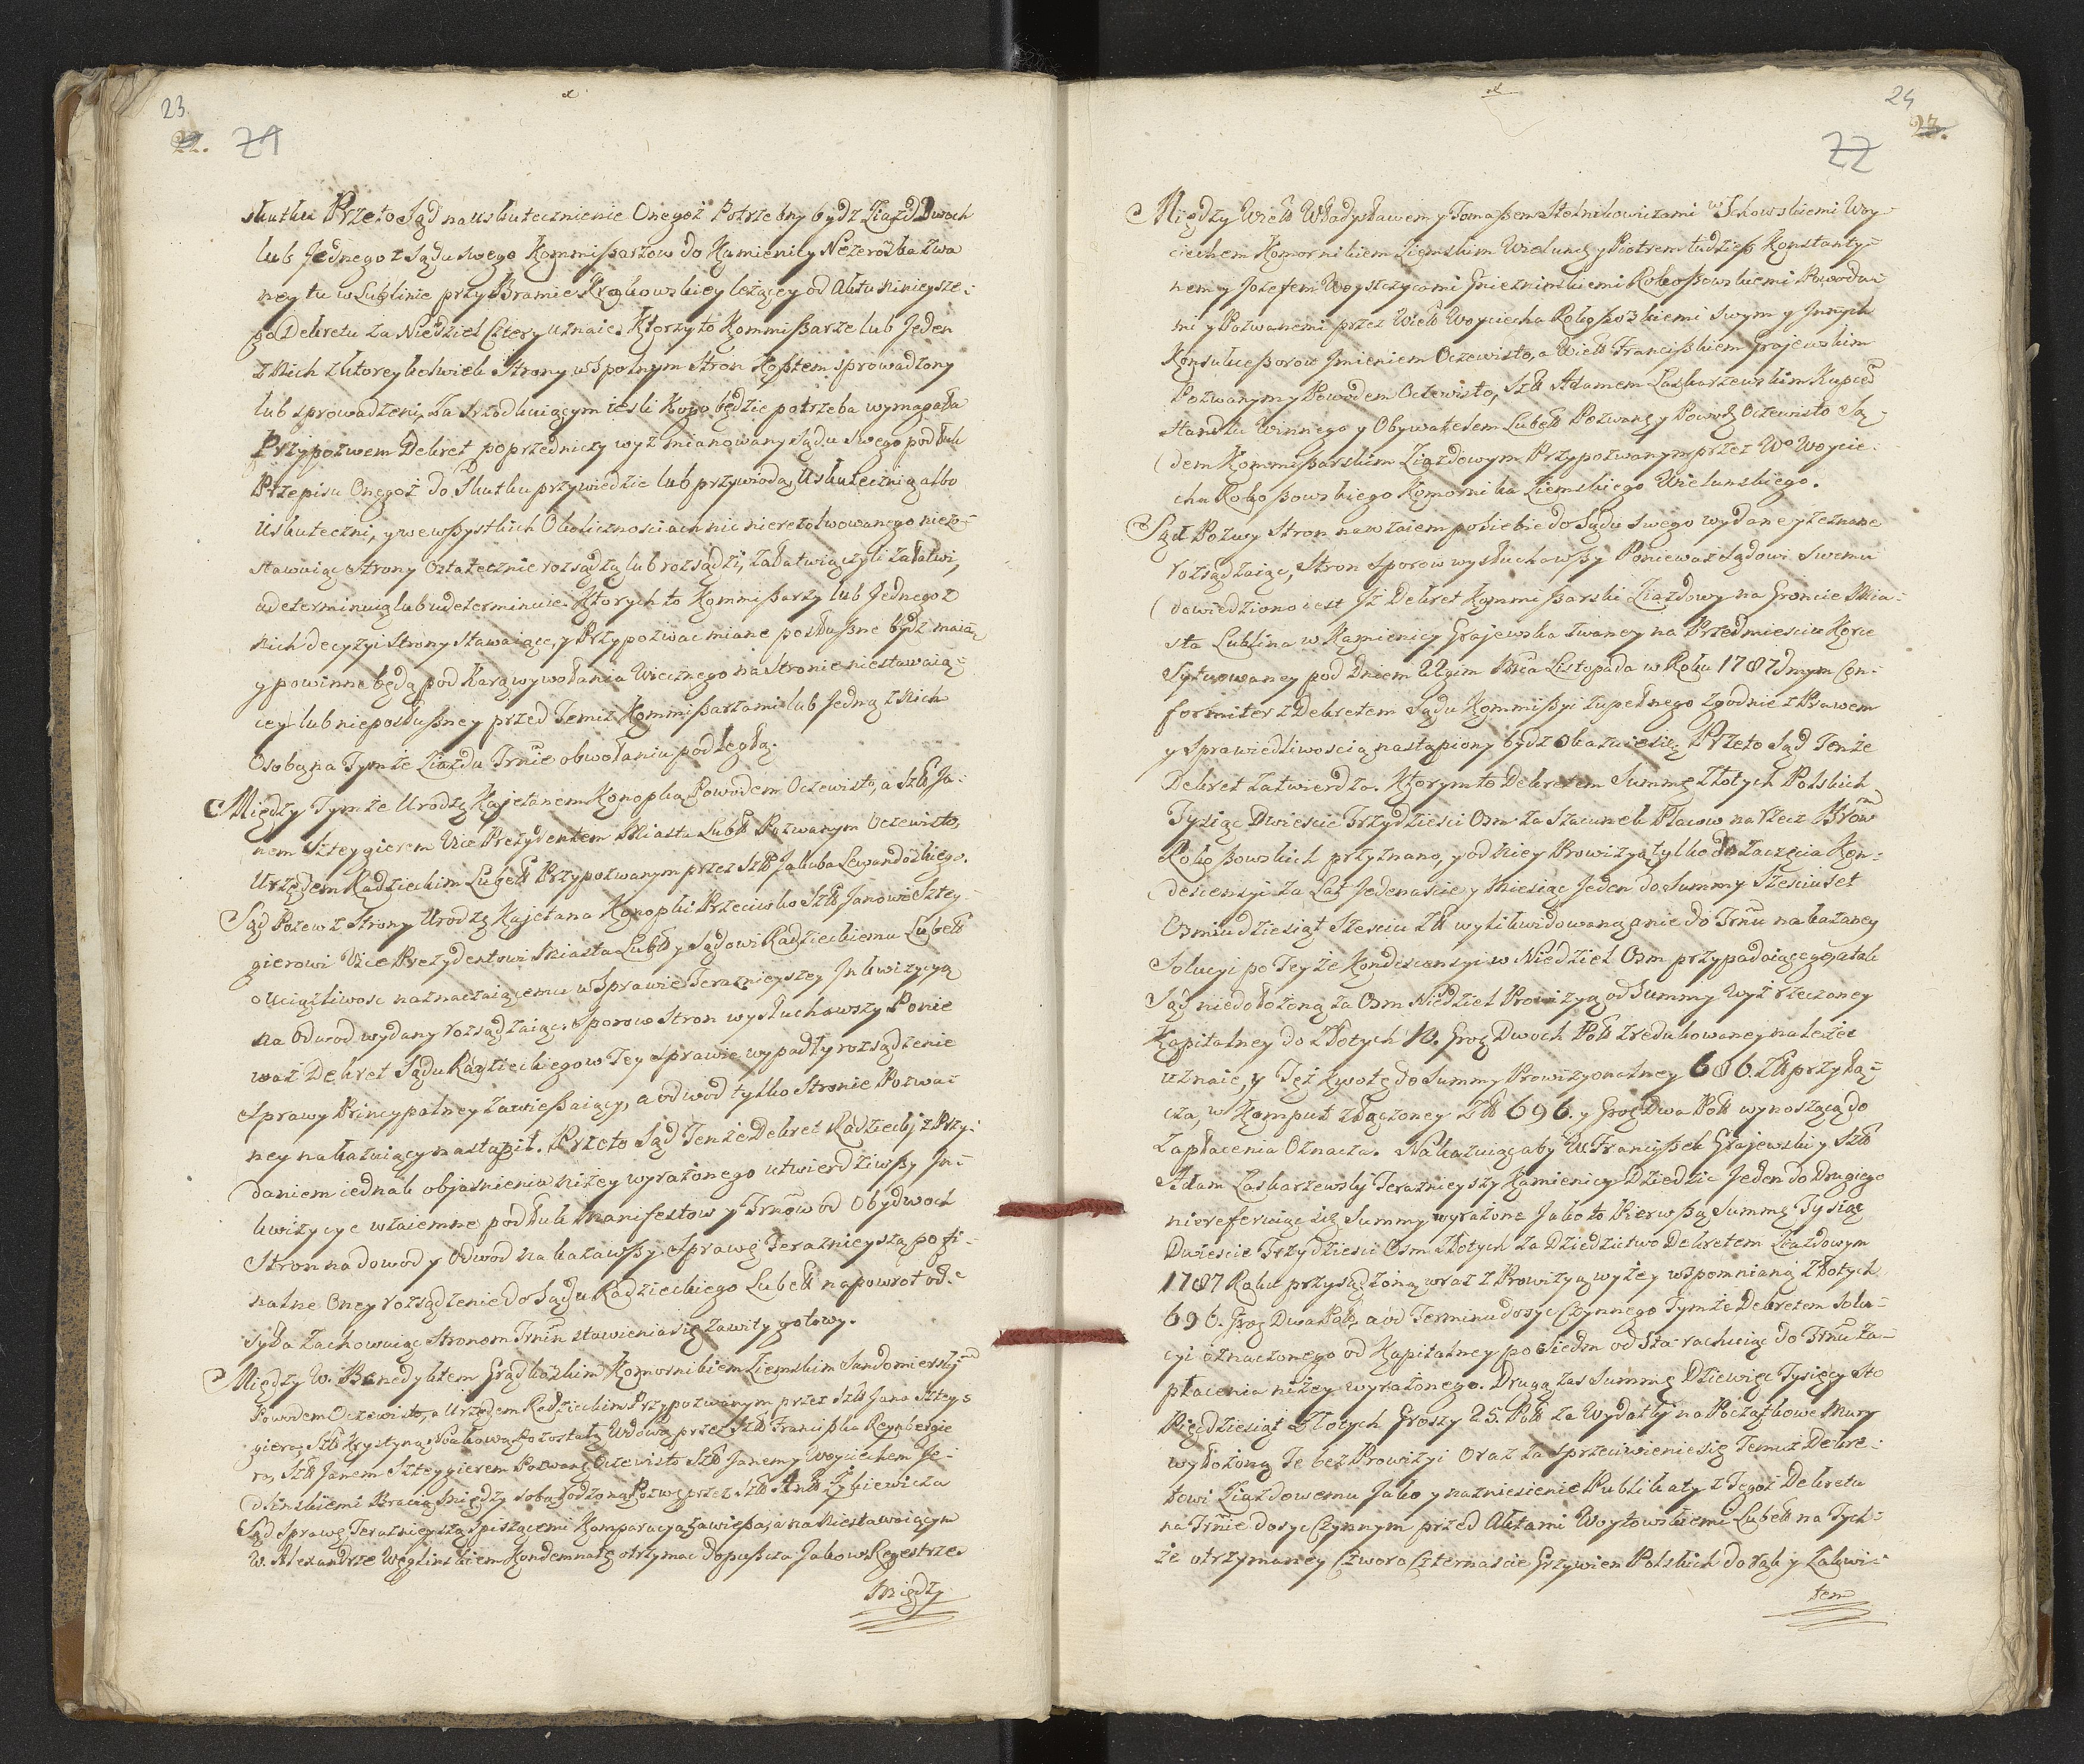 23
22. 21
skutku Przeto Sąd na uskutecznienie Onegoż Potrzebny bydź Ziazd Dwoch
lub Jednego z Sądu swego Kommißarzow do Kamienicy Nieżerożka zwa
ney tu w Lublinie przy Bramie Krakowskiey leżącey od Aktu ninieysze-
go Dekretu za Niedziel Cztery uznaie. Ktorzy to Kommißarze lub Jeden
z Nich z ktoreykolwiek Strony wspolnym Stron Kosztem sprowadzony
lub sprowadzeni, Za srzodkuiącym iesli Kogo będzie potrzeba wymagała
Przypozwem Dekret poprzedniczy wyż mianowany Sądu swego podług
Przepisu Onegoż do Skutku przywiedzie lub przywiodą, Uskutecznią albo
Uskuteczni, y we wßystkich Okolicznosciach nic nierezolwowanego niezo-
stawuiąc Strony Oztatecznie rozsądzą lub rozsądzi, załatwią czyli załatwi,
udeterminuią lub udeterminuie. Ktorych to Kommißarzy lub Jednego z
nich decyzyi Strony stawaiące, y Przypozwać miane posłußne bydź maią
y powinne będą pod Karą wywołania Wiecznego na Stronie niestawaią-
cey lub nieposłußney przed Temiż Kommißarzami lub Jedną z Nich
Osobą na Tymże Ziazdu Trnie obwołaniu podległą.
Między Tymże Urodz Kajetanem Konopką Powodem Oczewisto, a Szlt Ja-
nem Szteygierem Vice Prezydentem Miasta Lubtt Pozwanym Oczewisto,
Urzędem Radzieckim Lubettt Przypozwanym przez Szltt Jakuba Lewandozkiego.
Sąd Pozew z Strony Urodz Kajetana Konopki Przeciwko Szltt Janowi Sztey-
gierowi Vice Prezydentowi Miasta Lubtt y Sądowi Radzieckiemu Lubettt
o Uciążliwosc naznaczaiącemu w Sprawie Teraznieyszey Inkwizycyą
na Odwod wydany rozsądzaiąc, sporow Stron wysłuchawszy Ponie
waż Dekret Sądu Radzieckiego w Tey Sprawie wypadły rozsądzenie
Sprawy Princypalney zawießaiący, a odwod tylko Stronie Pozwa-
ney nakazuiący nastąpił. Przeto Sąd Tenże Dekret Radziecki z Przy-
daniem iednak objasnienia niżey wyrażonego utwierdziwßy In-
kwizycye wzaiemne podług Manifestow y Trnow od Obydwoch
Stron na dowod y Odwod nakazawßy Sprawę Teraznieyszą po fi-
nalne Oney rozsądzenie do Sądu Radzieckiego Lubettt napowrot od-
syła Zachowuiąc Stronom Trnin stawienia się zawity gotowy.
Między W. Benedyktem Grądkazkim Komornikiem Ziemskim Sandomierskim
Powodem Oczewisto, a Urzędem Radzieckim Przypozwanym przez Szltt Jana Sztey-
giera, Szltt Krystyną Noakową Pozostałą Wdową przez Szltt Francißka Reynbergie
ra, Szltt Janem Szteygierem Pozwaną Oczewisto Szltt Janem y Woyciechem Je-
dlinskiemi Bracią między sobą rodzoną Pozwę przez Szltt Antt Żykiewicza
Sąd Sprawę Teraznieyszą spiszącemi Komparacyą zawießa, a na Niestawaiącym
W. Alexandrze Węglinskiem Kondemnatę otrzymać dopußcza Jako w Regestrze.
Między
24
23. 22
Między Wieltt Władysławem y Tomaßem Stolnikowiczami Wschowskiemi Woy-
ciechem Komornikiem Ziemskim Wielunz y Piotrem tudzież Konstanty-
nem y Jozefem Woyszczycami Gnieznienskiemi Rokoßowskiemi Powoda-
mi y Pozwanemi przez Wieltt Woyciecha Rokoßozkiemi swym y Innych
Konsukceßorow Imieniem Oczewisto, a Wieltt Francißkiem Grajewskim
Pozwanym y Powodem Oczewisto, Szltt Adamem Laskarzewskim Kupcem
Handlu Winnego y Obywatelem Lubettt Pozwanz y Powodz Oczewisto Są-
dem Kommißarskim Ziazdowym Przypozwanym przez Wo Woycie-
cha Rokoßowskiego Komornika Ziemskiego Wielunskiego.
Sąd Pozwy Stron nawzaiem po siebie do Sądu swego wydane y zeznane
rozsądzaiąc, Stron Sporow wysłuchawßy Poniewaz Sądowi Swemu
dowiedziono iest Iż Dekret Kommißarski Ziazdowy na Groncie Mia-
sta Lublina w Kamienicy Grajewska zwaney na Przedmiesciu Korce
Sytuowaney pod Dniem 22gim Mca Listopada w Roku 1787dmym Con-
formiter z Dekretem Sądu Kommißyi zupełnego zgodnie z Prawem
y Sprawiedliwoscią nastąpiony bydź okazuie się Przeto Sąd Tenże
Dekret zatwierdza. Ktorym to Dekretem Summę Złotych Polskich
Tysiąc Dwiescie Trzydziesci Osm za Szacunek Placow na rzecz Brow
Rokoßowskich przyznano, y od Niey Prowizyą tylko do zaczęcia Kon-
descensyi za Lat Jedenascie y Miesiąc Jeden do Summy Szesciuset
Osmiudziesiąt Szesciu Zltt wylikwidowaną, a nie do Trnu nakazaney
Solucyi po Teyże Kondescensyi w Niedziel Osm przypadaiącego, a tak
Sąd niedołożoną za Osm Niedziel Prowizyą od Summy Wyż rzeczoney
Kapitalney do Złotych 10. Grosz Dwoch Poltt zredukowaney należeć
uznaie, y Też kwotę do Summy Prowizyonalney 686. Zltt przyłą-
cza, w Komput złączoney Zltt 696. y Grosz Dwa Poltt wynoszącą do
Zapłacenia Oznacza. Nakazuiąc aby Ur Francißek Grajewski y Szltt
Adam Laskarzewski Teraznieyszy Kamienicy Dziedzic Jeden do Drugiego
niereferuiąc się Summy wyrażone Jako to Pierwßą Summę Tysiąc
Dwiescie Trzydziesci Osm Złotych za Dziedzictwo Dekretem Ziazdowym
1787 Roku przysądzoną wraz z Prowizyą wyżey wspomnianą Złotych
696. Grosz Dwa Poltt, a od Terminu dosyć Czynnego Tymże Dekretem Solu-
cyi oznaczonego od Kapitalney po Siedm od Sta rachuiąc do Trnu Za-
płacenia niżey wyrażonego. Drugą zas Summę Dziewięc Tysięcy Sto
Pięćdziesiąt Złotych Groszy 25. Poltt za Wydatki na Początkowe Mury
wyłożoną Te bez Prowizyi oraz za sprzeciwienie się Temuż Dekre-
towi Ziazdowemu Jako y nazniesienie Publikaty z Tegoż Dekretu
na Trnie dosyc Czynnym przed Aktami Woytowskiemi Lubettt na Tych-
że otrzymaney Czworo Czternascie Grzywien Polskich do rąk y Zakwi-
tem